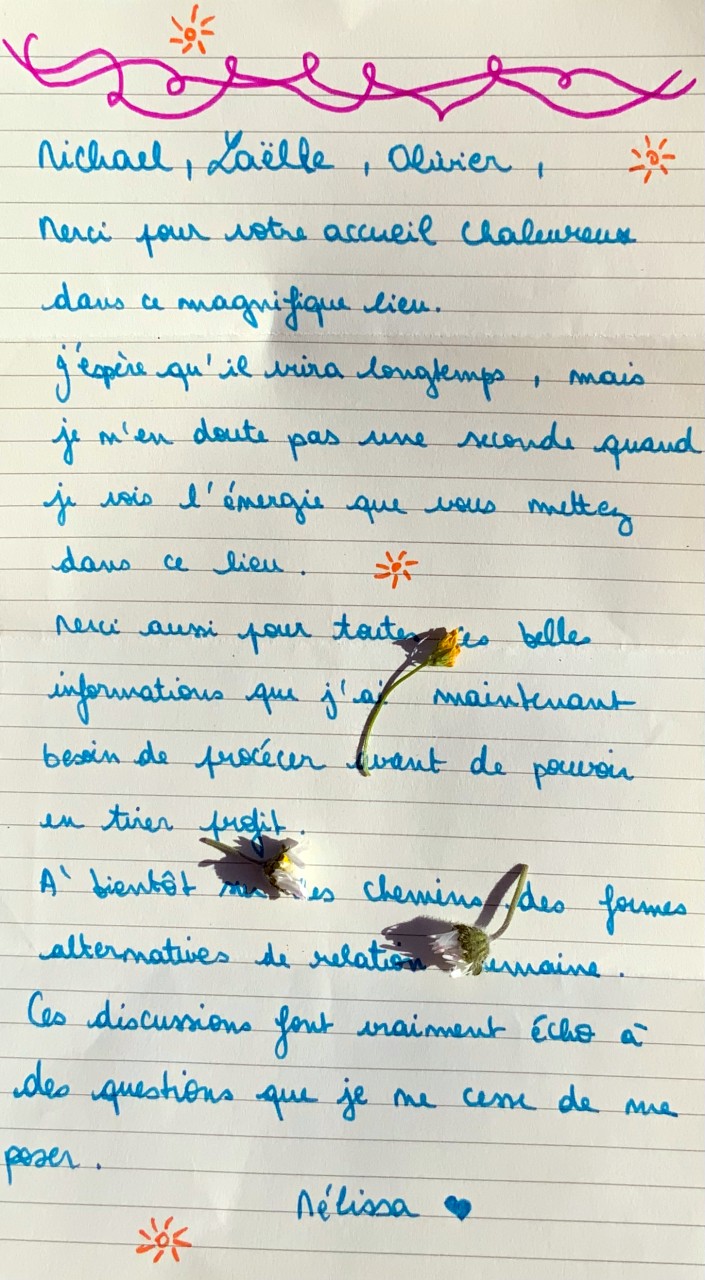 Michael, Laëlle, Olivier,
Merci pour votre accueil chaleureux
dans ce magnifique lieu.
j'espère qu'il vivra longtemps, mais
je m'en doute pas une seconde quand
je vois l'émergie que vous mettez
dans ce lieu.
Merci aussi pour toutes belles
informations que j'ai maintenant
besoin de procécer avant de pouvoir
en tirer profit.
A' bientôt chemins des formes
alternatives de relation humaine.
Ces discussions font vraiment écho à
des questions que je ne cesse de me
poser.
Mélissa ♥